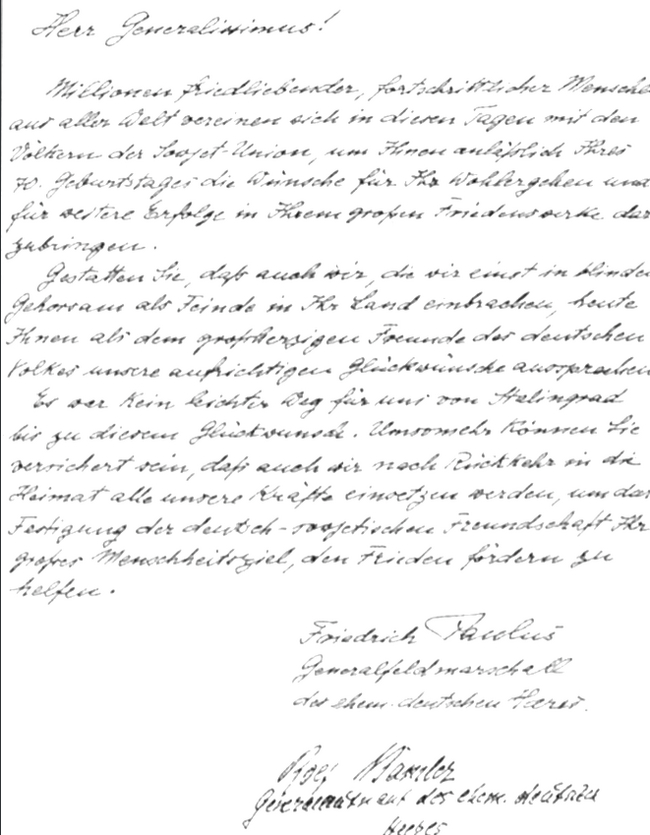 Herr Generalissimus!
Millionen friedliebender, fortschrittlicher Mensche
aus aller Welt vereinen sich in diesen Tagen mit den
Völkern der Sovjet-Union, um Ihnen anläßlich Ihres
70. Geburtstages die Wünsche für Ihr Wohlergehen und
für weitere Erfolge in Ihrem großen Friedenswerke dar
zubringen.
Gestatten Sie, daß auch wir, die wir einst in blinde
Gehorsam als Feinde in Ihr Land einbrachen, heute
Ihnen als dem großherzigen Freunde des deutschen
Volkes unsere aufrichtigen Glückwünsche aussprechen
Es war kein leichter Weg für uns von Stalingrad
bis zu diesem Glückwunsch. Umsomehr können Sie
versichert sein, daß auch wir nach Rückkehr in die
Heimat alle unsere Kräfte einsetzen werden, um dur
Festigung der deutsch-sovjetischen Freundschaft Ihr
großes Menschheitsziel, den Frieden fördern zu
helfen.
Friedrich Paulus
Generalfeldmarschall
des ehem. deutschen Heeres.
Generalleutnant des ehem. deutschen
Heeres